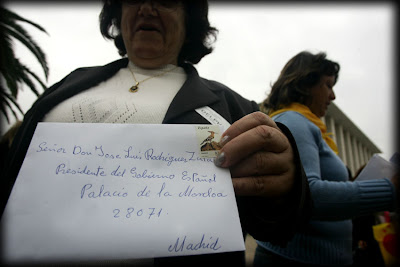 Señor Don Jose Luis Rodriguez
Presidente del Gobierno Español
Palacio de la Moncloa
28071.
Madrid